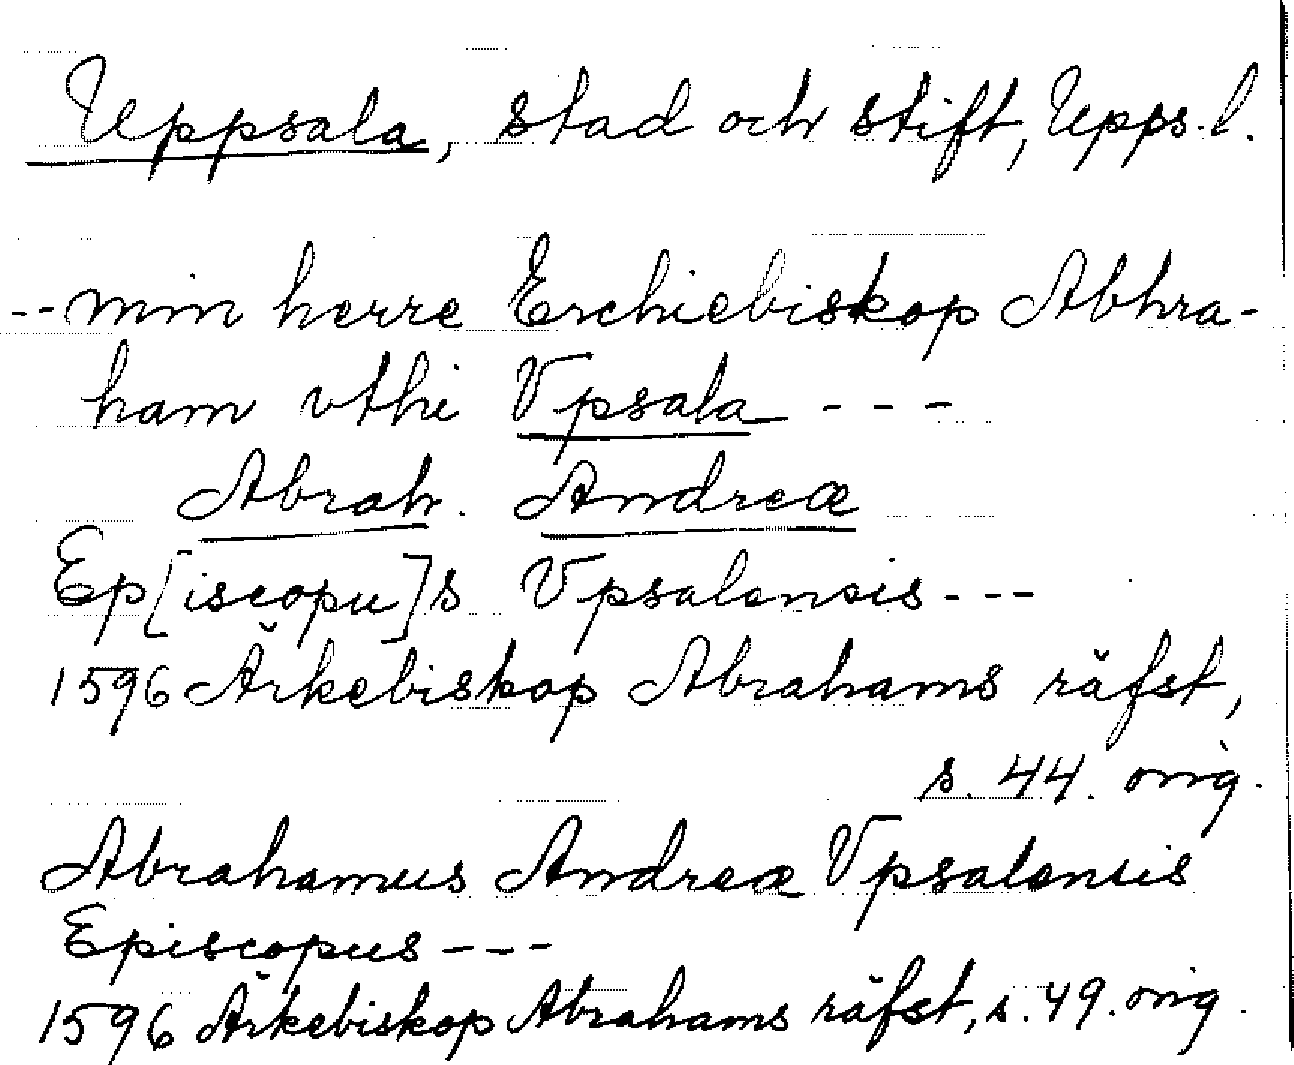 Uppsala, stad och stift, Upps. l.
--min herre Erchiebiskop Abhra-
ham vthi Vpsala ---
Abrah. Andreæ
Ep[iscopu]s Vpsalensis ---
1596 Ärkebiskop Abrahams räfst,
s. 44. orig.
Abrahamus Andreæ Vpsalensis
Episcopus ---
1596 Ärkebiskop Abrahams räfst, s. 49. orig.